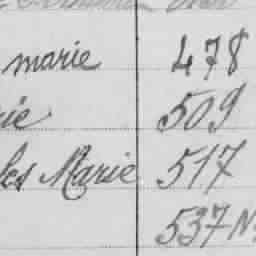 marie 478
rie 509
les Marie 517
537 N